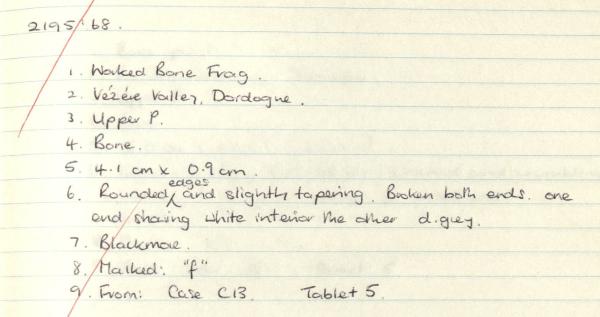 2195'68.
1. Worked Bone Frag.
2. Vézère Valley, Dordogne.
3. Upper P.
4. Bone.
5. 4.1 cm x 0.9 cm.
6. Rounded edges and slightly tapering. Broken both ends. one
end showing white interior the other d.grey.
7. Blackmore.
8. Marked: "f"
9. From: Case C13. Tablet 5.